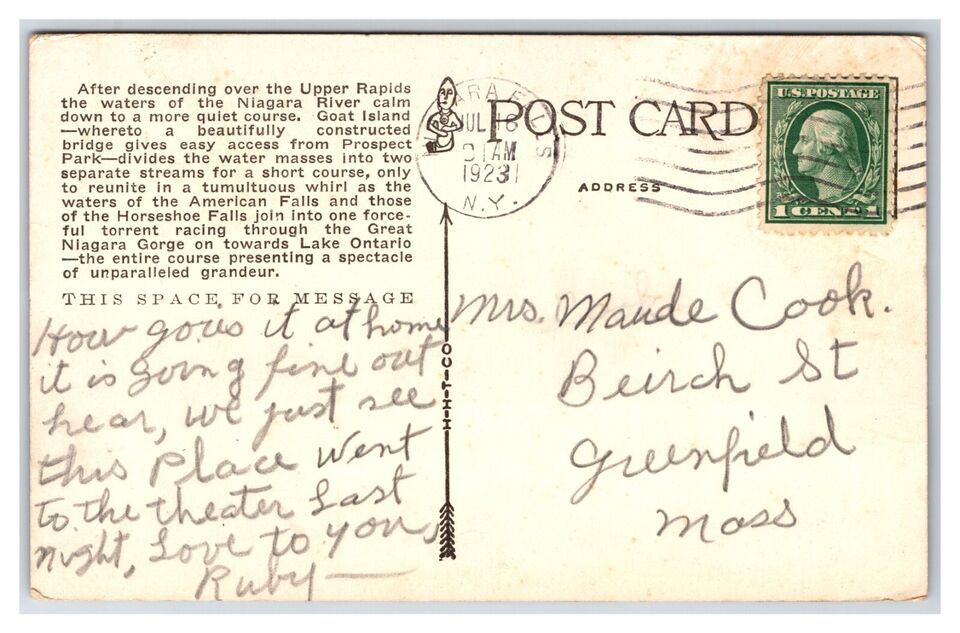 After descending over the Upper Rapids
the waters of the Niagara River calm
down to a more quiet course. Goat Island
—whereto a beautifully constructed
bridge gives easy access from Prospect
Park—divides the water masses into two
separate streams for a short course, only
to reunite in a tumultuous whirl as the
waters of the American Falls and those
of the Horseshoe Falls join into one force-
ful torrent racing through the Great
Niagara Gorge on towards Lake Ontario
—the entire course presenting a spectacle
of unparalleled grandeur.
THIS SPACE FOR MESSAGE
How goies it at home
it is going fine out
hear, we just see
this Place went
to the theater Last
night, Love to you,
Ruby—
H-H-T-CO
JUL
AM
1923
N.Y.
POST CARD
ADDRESS
U.S. POSTAGE
1 CENT
Mrs. Maude Cook.
Beirch St
Greenfield
Mass